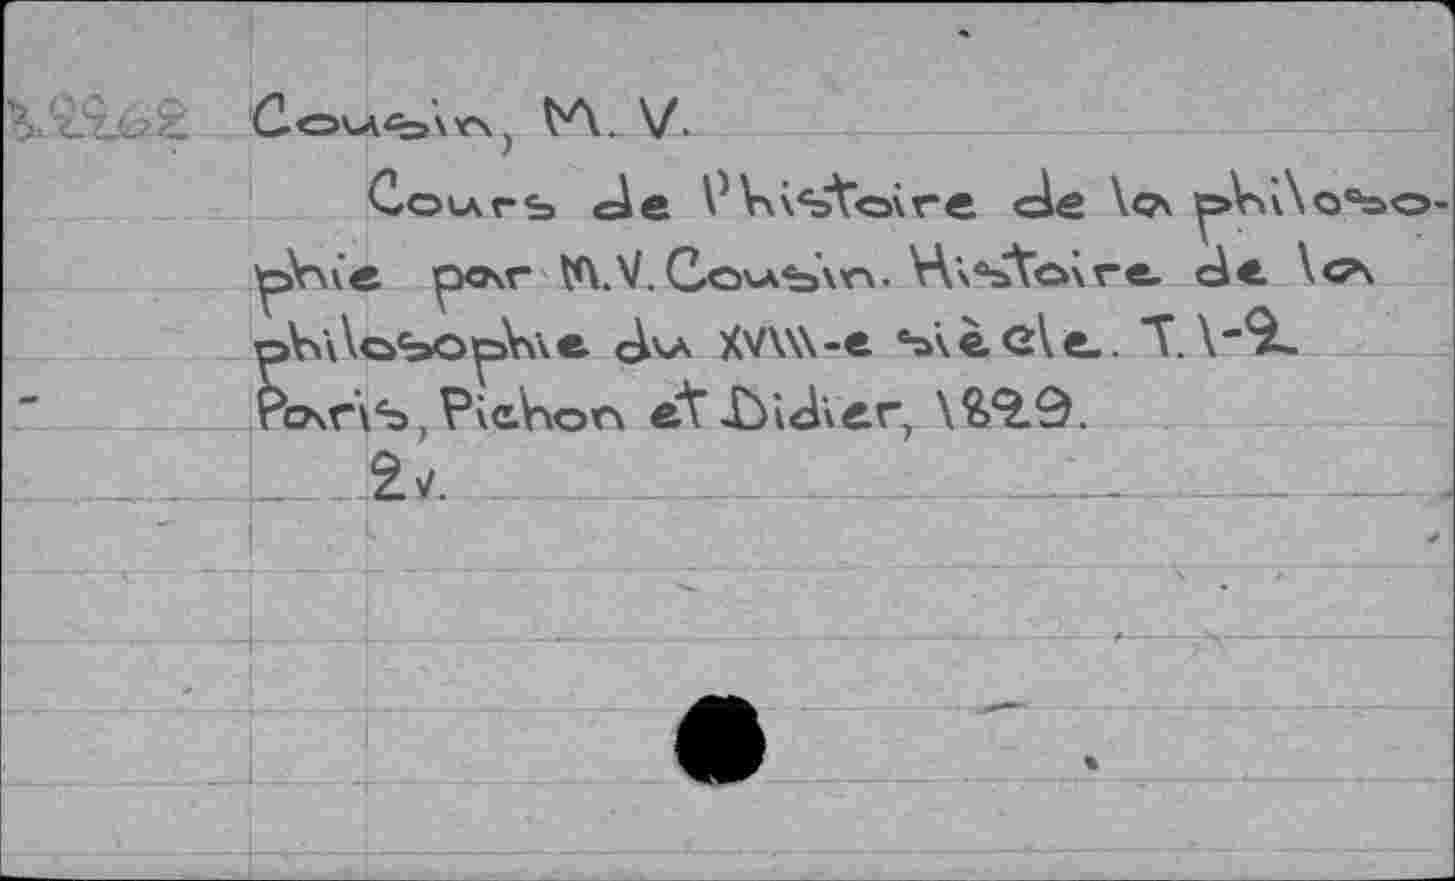 Cousin, M. V.
Cours de l'histoire de la philoso-
phie par M.V. Cousin. Histoire de la
philosophie du XVIII-e siècle. T. 1-2.
Paris, Pichon et Didier, 1829.
2 v.